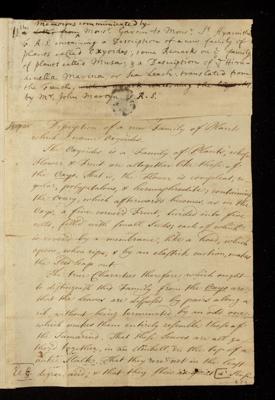 Memoires communicated by
a Letter from Mons. Garcin to Mons. St Hyacinthe
F.R.S. containing a Description of a new family of
plants called Oxyoides; some Remarks on ye family
of plants called Musa; & a Description of ye Hiru-
dinella Marina or Sea Leach. translated from
the French,
by Mr. John Martyn F.R.S.
A Description of a new Family of Plants
which I name Oxyoides.
The Oxyoides is a Family of Plants, whose
Flower & Fruit are altogether like those of
the Oxys. That is, the Flower is compleat, re-
gular, polypetalous, & hermaphrodite; containing
the Ovary, which afterwards becomes, as in the
Oxys, a five-corner'd Fruit, divided into five
cells, filled with small Seeds, each of which
is cover'd by a membrane, like a hood, which
opens, when ripe, & by an elastick motion, makes
the Seed leap out.
The true Characters therefore, which ought
to distinguish this Family from the Oxys are
that the leaves are disposed by pairs along a
rib, without being terminated by an odd one,
which makes them entirely resemble those of
the Tamarind. That these leaves are all ga-
ther'd together, in an Umbell, on the top of a
Stalk. That they are not in the least
& that they